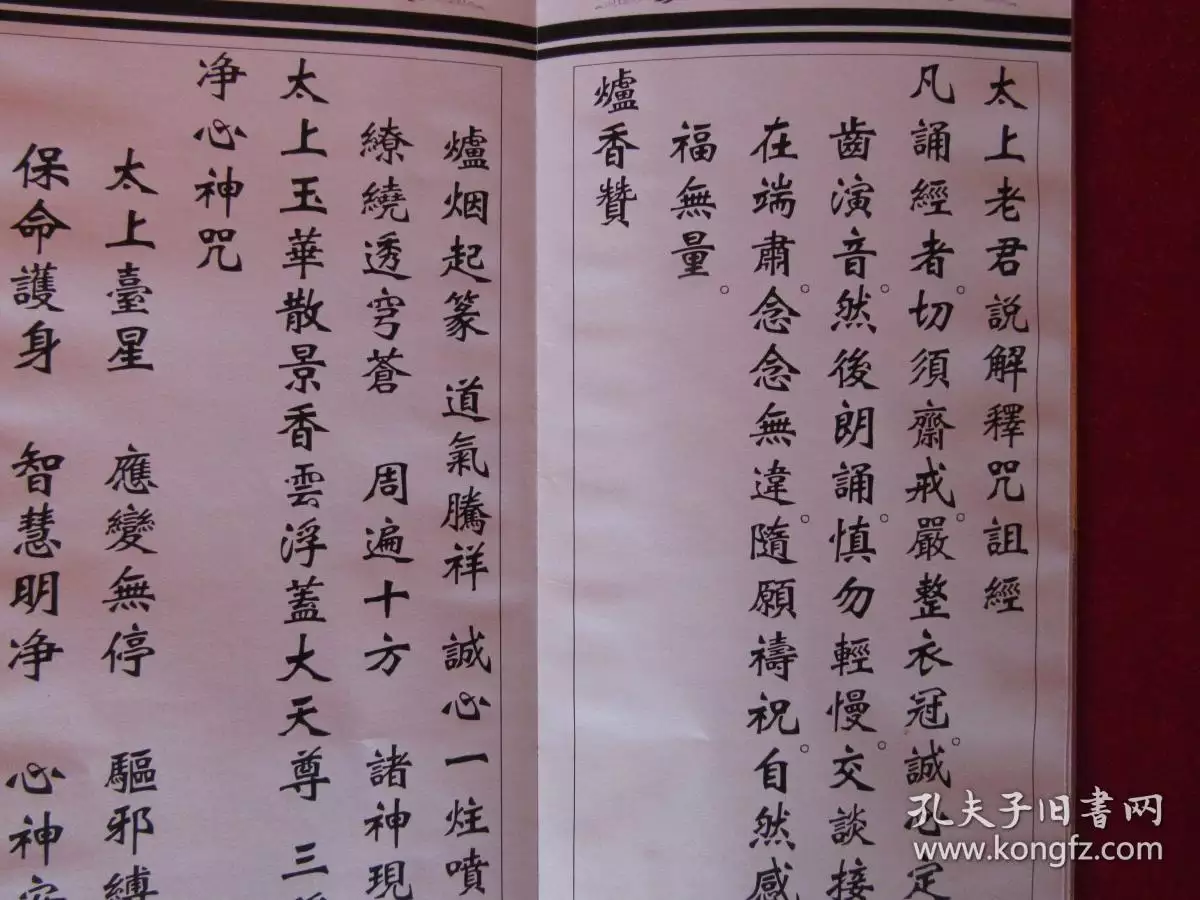 太上老君説解釋咒詛經
凡誦經者。切須齋戒。嚴整衣冠。誠心定
齒演音。然後朗誦。慎勿輕慢。交談接
在端肅。念念無違。隨願禱祝。自然感
福無量。
爐香贊
爐烟起篆 道氣騰祥 誠心一炷噴
繚繞透穹蒼 周遍十方 諸神現
太上玉華散景香雲浮蓋大天尊 三
净心神咒
太上臺星 應變無停 驅邪縛
保命護身 智慧明净 心神安
孔夫子旧書网
www.kongfz.com